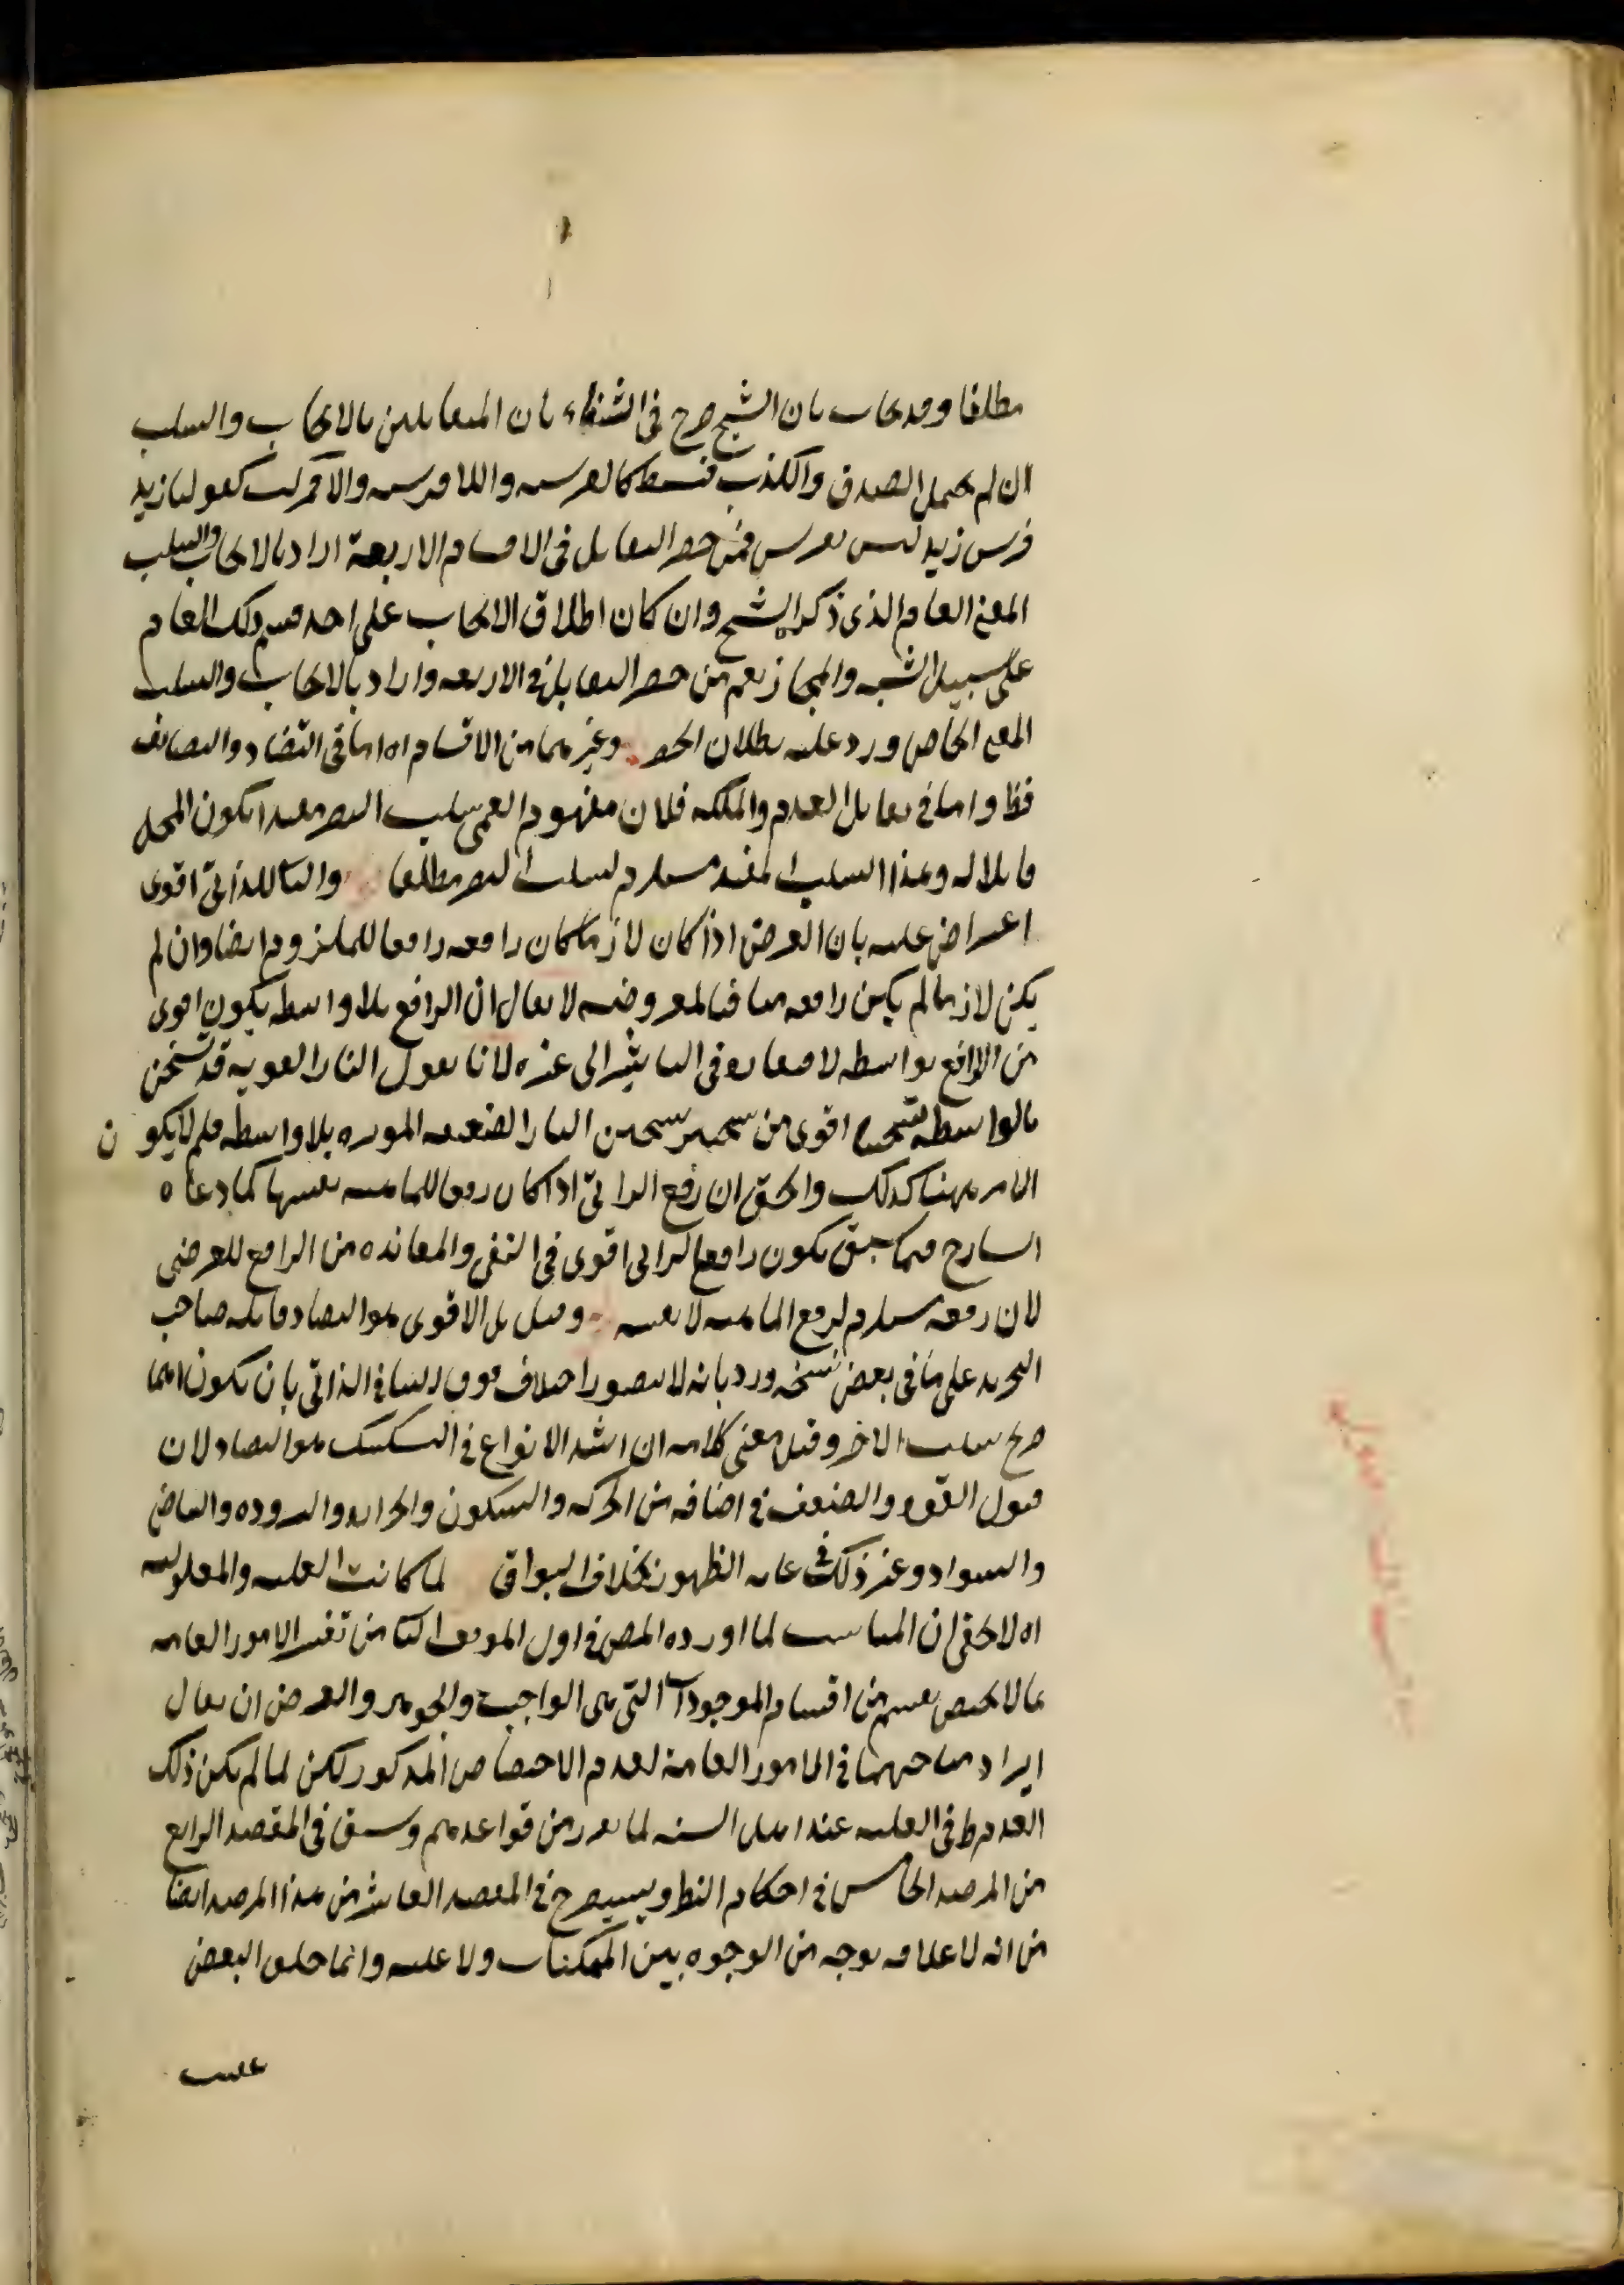 مطلقا وقد يجاب بان الشيخ صرح في الشفاء بان المتقابلين بالايجاب والسلب
ان لم يحتمل الصدق والكذب فبسيط كالفرسية واللافرسية والا فمركب كقولنا زيد
فرس زيد ليس بفرس فمن حصر التقابل في الاقسام الاربعة اراد بالايجاب والسلب
المعنى العام الذي ذكره الشيخ وان كان اطلاق الايجاب على احد قسمي ذلك العام
على سبيل الشبه والمجاز نعم من حصر التقابل في الاربعة واراد بالايجاب والسلب
المعنى الخاص ورد عليه بطلان الحصر وغيرهما من الاقسام اه اما في التضاد والتضايف
فظ واما في تقابل العدم والملكه فلان مفهوم العمى سلب البصر مقيدا بكون المحل
قابلا له وهذا السلب المقيد مستلزم لسلب البصر مطلقا والثا للذاتي اقوى
اعتراض عليه بان العرض اذا كان لازما كان رافعه رافعا للملزوم ايضا وان لم
يكن لازما لم يكن رافعه منافيا لمعروضه لا يقال ان الرافع بلا واسطه يكون اقوى
من الرافع بواسطه لافتقاره في التاثير الى غيره لانا نقول النار القويه قد تسخن
بالواسطه تسخينا اقوى من تسخين النار الضعيفه الموثره بلا واسطه فلم لا يكون
الامر ههنا كذلك والحق ان رفع الذاتي اذا كان رفعا للماهيه نفسها كما ادعاه
الشارح فيما سبق يكون رافع الذاتي اقوى في النفي والمعانده من الرافع للعرضي
لان رفعه مستلزم لرفع الماهيه لا نفسه وقيل بل الاقوى هو التضاد قائله صاحب
التجريد على ما في بعض نسخه ورد بانه لا يتصور اختلاف فوق التنافي الذاتي بان يكون احدهما
صريح سلب الاخر وقيل معنى كلامه ان اشد الانواع في التشكيك هو التضاد لان
قبول القوه والضعف في اضافه من الحركه والسكون والحراره والبروده والبياض
والسواد وغير ذلك في غايه الظهور بخلاف البواقي لما كانت العليه والمعلوليه
اه لا يخفى ان المناسب لما اورده المص في اول الموقف الثا من تفسير الامور العامه
بما لا يختص بقسم من اقسام الموجودات التي هي الواجب والجوهر والعرض ان يقال
ايراد مباحثهما في الامور العامة لعدم الاختصاص المذكور لكن لما لم يكن ذلك
العدم ط في العليه عند اهل السنه لما تقرر من قواعدهم وسبق في المقصد الرابع
من المرصد الخامس في احكام النظر وسيصرح في المقصد العاشر من هذا المرصد ايضا
من انه لا علاقه بوجه من الوجوه بين الممكنات ولا عليه وانما خلق البعض
عقيب